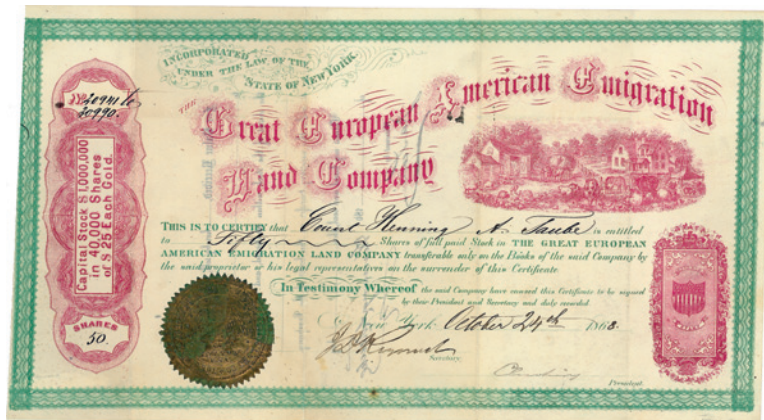 INCORPORATED
UNDER THE LAW OF THE
STATE OF NEW YORK
No 20941 to
20990.
THE
Great European American Emigration
Land Company
Capital Stock $1,000,000
in 40,000 Shares
of $25 Each Gold.
THIS IS TO CERTIFY that Count Henning A. Taube is entitled
to Fifty Shares of full paid Stock in THE GREAT EUROPEAN
AMERICAN EMIGRATION LAND COMPANY transferable only on the Books of the said Company by
the said proprietor or his legal representatives on the surrender of this Certificate.
In Testimony Whereof the said Company have caused this Certificate to be signed
by their President and Secretary and duly recorded.
New York October 24th 1868.
SHARES
50.
Secretary.
President.